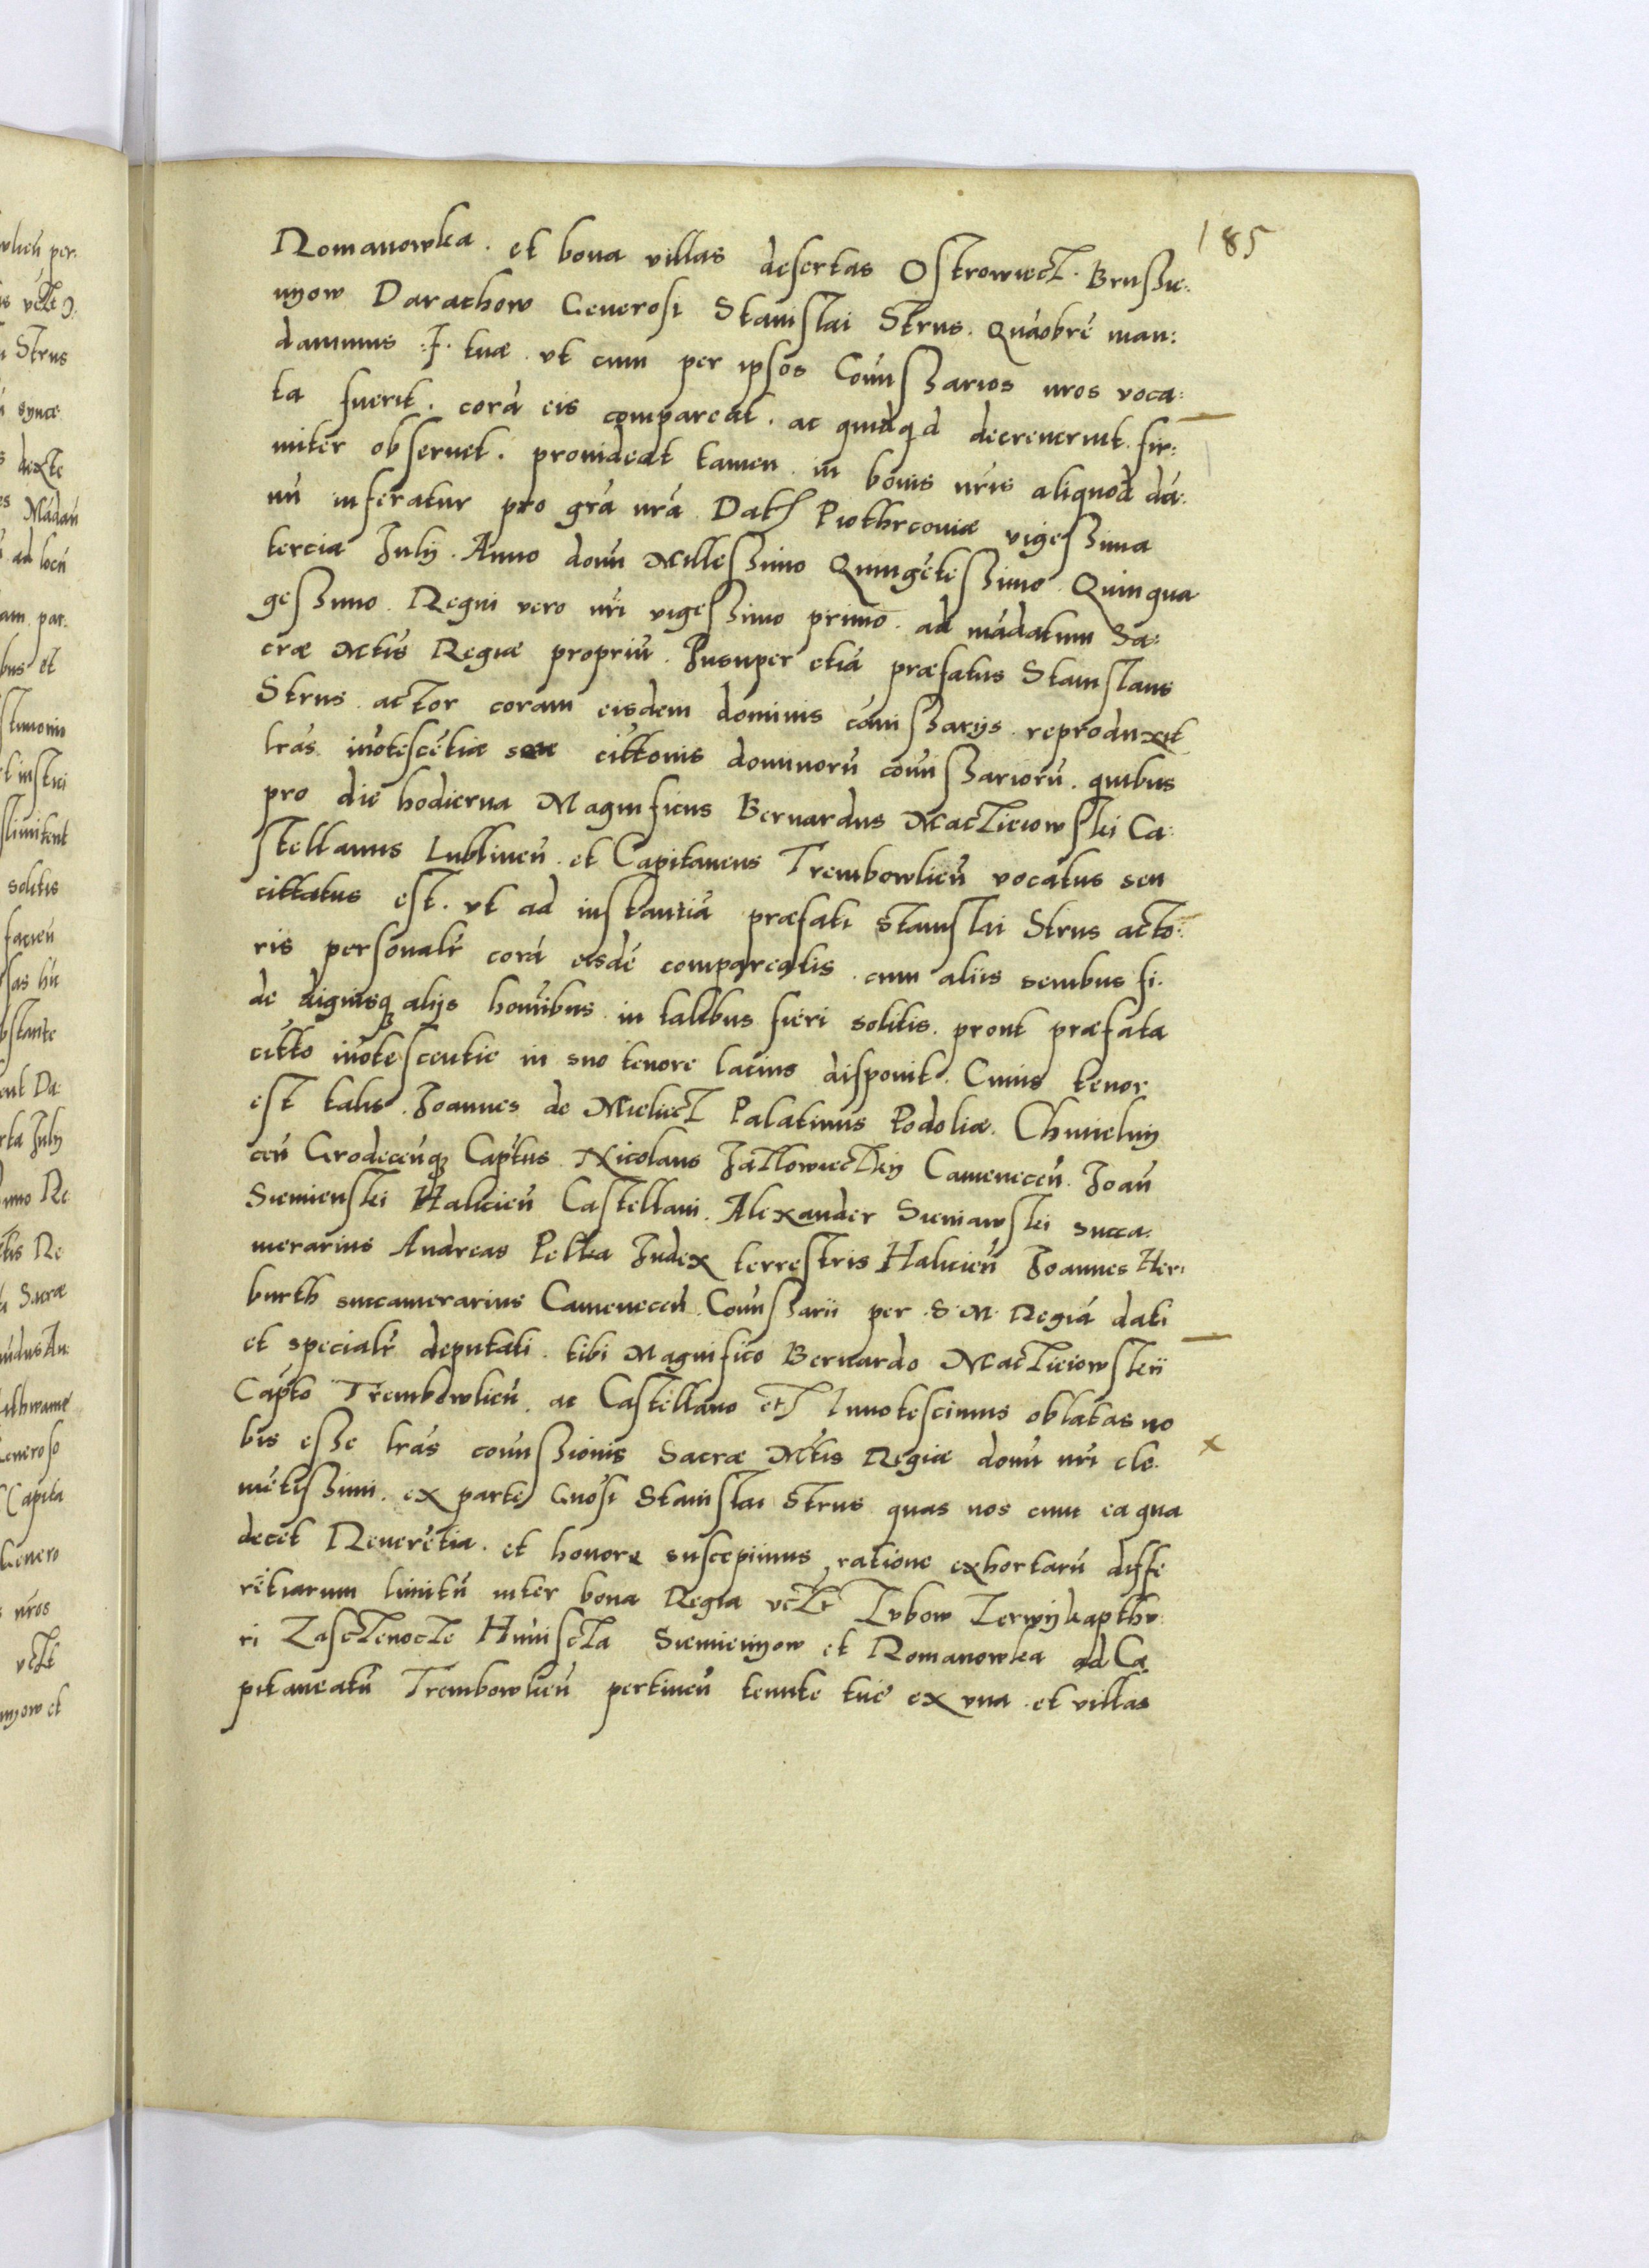 185
Romanowka . et bona villas desertas Ostrowiecz . Brussie:
nyow Darachow Generosi Stanislai Strus . Quáobré man:
damus :f. tuæ . vt cum per ipsos Coḿissarios nros voca:
ta fuerit . corá eis compareat . ac quidqd decreuerint . fir:
miter obseruet . prouideat tamen . in bonis nris aliquod dá:
nú inferatur pro grá nrá . Dat Piothrcouiæ vigessima
tercia Julij . Anno doḿ Millessimo Quingétessimo Quinqua
gessimo . Regni vero nri vigessimo primo . ad mádatum Sa:
cræ Mtis Regiæ propriú . Insuper etiá præfatus Stanislaus
Strus actor coram eisdem dominis cóṁissarijs reproduxit
lrás inótescétiæ seu cittonis dominorú coḿissariorú . quibus
pro die hodierna Magnificus Bernardus Macziciowski Ca:
stellanus Lublineń . et Capitaneus Trembowlień vocatus seu
cittatus est . vt ad instantiá præfati Stanislai Strus acto:
ris personalr corá eisdé compareatis . cum aliis senibus fi:
de dignisq alijs homibus in talibus fieri solitis . prout præfata
citto inótescentie in suo tenore lacius disponit . Cuius tenor
est talis . Joannes de Mieliecz Palatinus Podoliæ . Chmielnij
ceń Grodeceńq Captus . Nicolaus Jazlowieczkij Cameneceń . Joań
Siemienski Halicień Castellani . Alexander Sieniawski succa:
merarius Andreas Pelka Judex terrestris Halicień Joannes Her:
burth succamerarius Cameneceń . Coḿissarii per S. M. Regiá dati
et specialr deputati . tibi Magnifico Bernardo Macziciowskii
Capto Trembowlień . ac Castellano etc Innotescimus oblatas no
bis esse lrás coḿissionis Sacræ Mtis Regiæ doḿ nri cle:
métissimi . ex parte Gnosi Stanislai Strus quas nos cum ea qua
decet Reuerétia . et honore suscepimus ratione exhortarú diffe
rétiarum limitú inter bona Regia vczt Zubow Zerwijkapthu
ri Zasczenocze Humiscza Siemienyow et Romanowka ad Ca
pitaneatú Trembowlień pertineń tenute tue ex vna . et villas